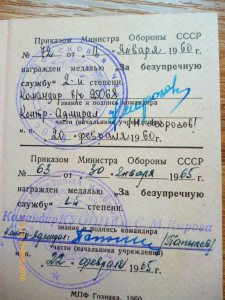 Приказом Министра Обороны СССР
№ 72 от 4 Января 1960 г.
награжден медалью „За безупречную
службу“ 2-й степени.
Командир в/ч 25068
звание и подпись командира
Контр-Адмирал (Н. Морозов)
части (начальника учреждения)
20 февраля 1960 г.
Приказом Министра Обороны СССР
№ 63 от 30 января 1965 г.
награжден медалью „За безупречную
службу“ I-й степени.
Командир С.М. Кирова
звание и подпись командира
Контр-адмирал
части (начальника учреждения)
22 февраля 1965 г.
МПФ Гознака. 1960.